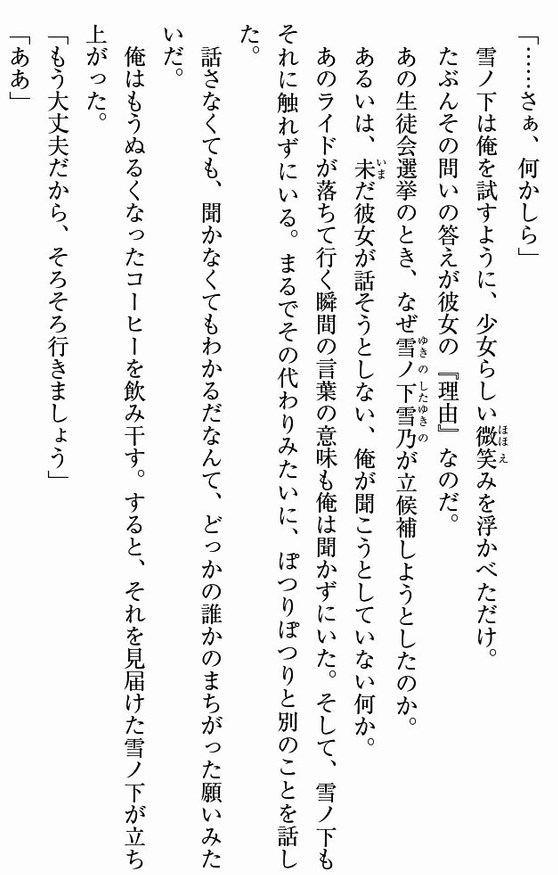 「……さぁ、何かしら」
雪ノ下は俺を試すように、少女らしい微笑みを浮かべただけ。
たぶんその問いの答えが彼女の『理由』なのだ。
あの生徒会選挙のとき、なぜ雪ノ下雪乃が立候補しようとしたのか。
あるいは、未だ彼女が話そうとしない、俺が聞こうとしていない何か。
あのライドが落ちて行く瞬間の言葉の意味も俺は聞かずにいた。そして、雪ノ下も
それに触れずにいる。まるでその代わりみたいに、ぽつりぽつりと別のことを話し
た。
話さなくても、聞かなくてもわかるだなんて、どっかの誰かのまちがった願いみた
いだ。
俺はもうぬるくなったコーヒーを飲み干す。すると、それを見届けた雪ノ下が立ち
上がった。
「もう大丈夫だから、そろそろ行きましょう」
「ああ」